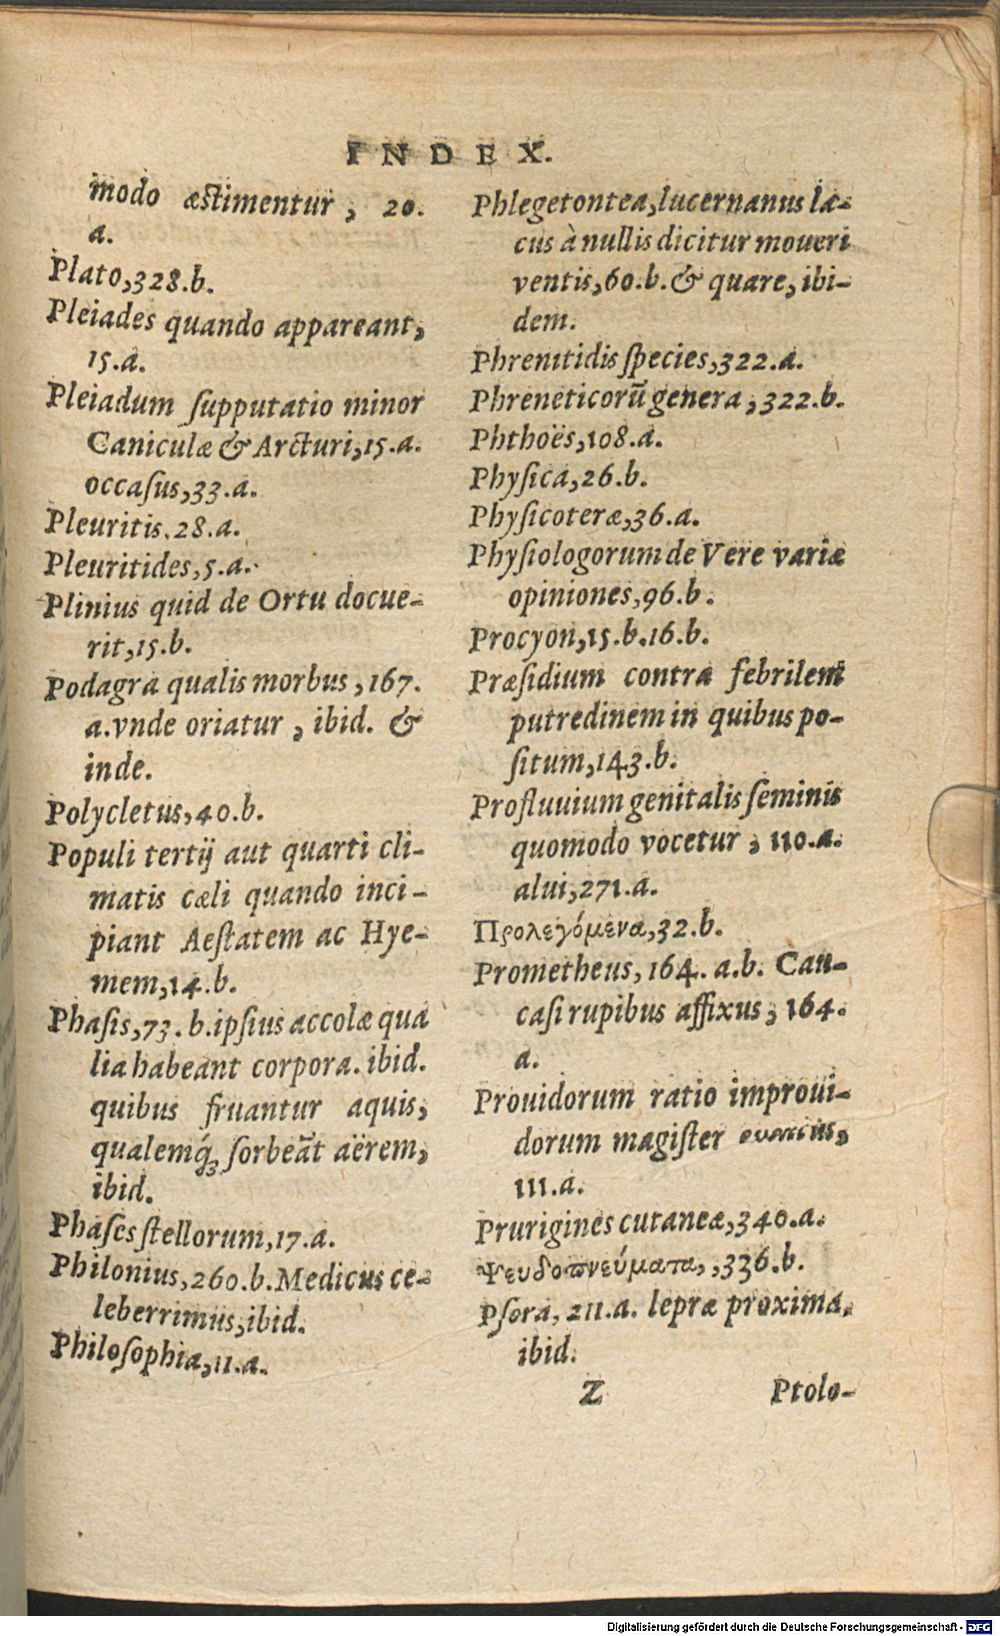 INDEX.
modo æstimentur, 20.
a.
Plato,328.b.
Pleiades quando appareant,
15.a.
Pleiadum ſupputatio minor
Caniculæ & Arcturi,15.a.
occaſus,33.a.
Pleuritis.28.a.
Pleuritides,5.a.
Plinius quid de Ortu docue-
rit,15.b.
Podagra qualis morbus, 167.
a.vnde oriatur, ibid. &
inde.
Polycletus,40.b.
Populi tertij aut quarti cli-
matis cæli quando inci-
piant Aeſtatem ac Hye-
mem,14.b.
Phaſis,73.b.ipſius accolæ qua
lia habeant corpora. ibid.
quibus fruantur aquis,
qualemq́; ſorbeāt aërem,
ibid.
Phaſes ſtellorum,17.a.
Philonius,260.b.Medicus ce-
leberrimus,ibid.
Philoſophia,11.a.
Phlegetontea,lucernanus la-
cus à nullis dicitur moueri
ventis,60.b.& quare, ibi-
dem.
Phrenitidis ſpecies,322.a.
Phreneticorū genera,322.b.
Phthoës,108.a.
Phyſica,26.b.
Phyſicoteræ,36.a.
Phyſiologorum de Vere variæ
opiniones,96.b.
Procyon,15.b.16.b.
Præſidium contra febrilem
putredinem in quibus po-
ſitum,143.b.
Profluuium genitalis ſeminis
quomodo vocetur, 110.a.
alui,271.a.
Προλεγόμενα,32.b.
Prometheus, 164. a.b. Cau-
caſi rupibus affixus, 164.
a.
Prouidorum ratio improui-
dorum magiſter
111.a.
Prurigines cutaneæ,340.a.
Ψευδοπνεύματα,,336.b.
Pſora, 211.a. lepræ proxima,
ibid.
Z Ptolo-
Digitalisierung gefördert durch die Deutsche Forschungsgemeinschaft - DFG